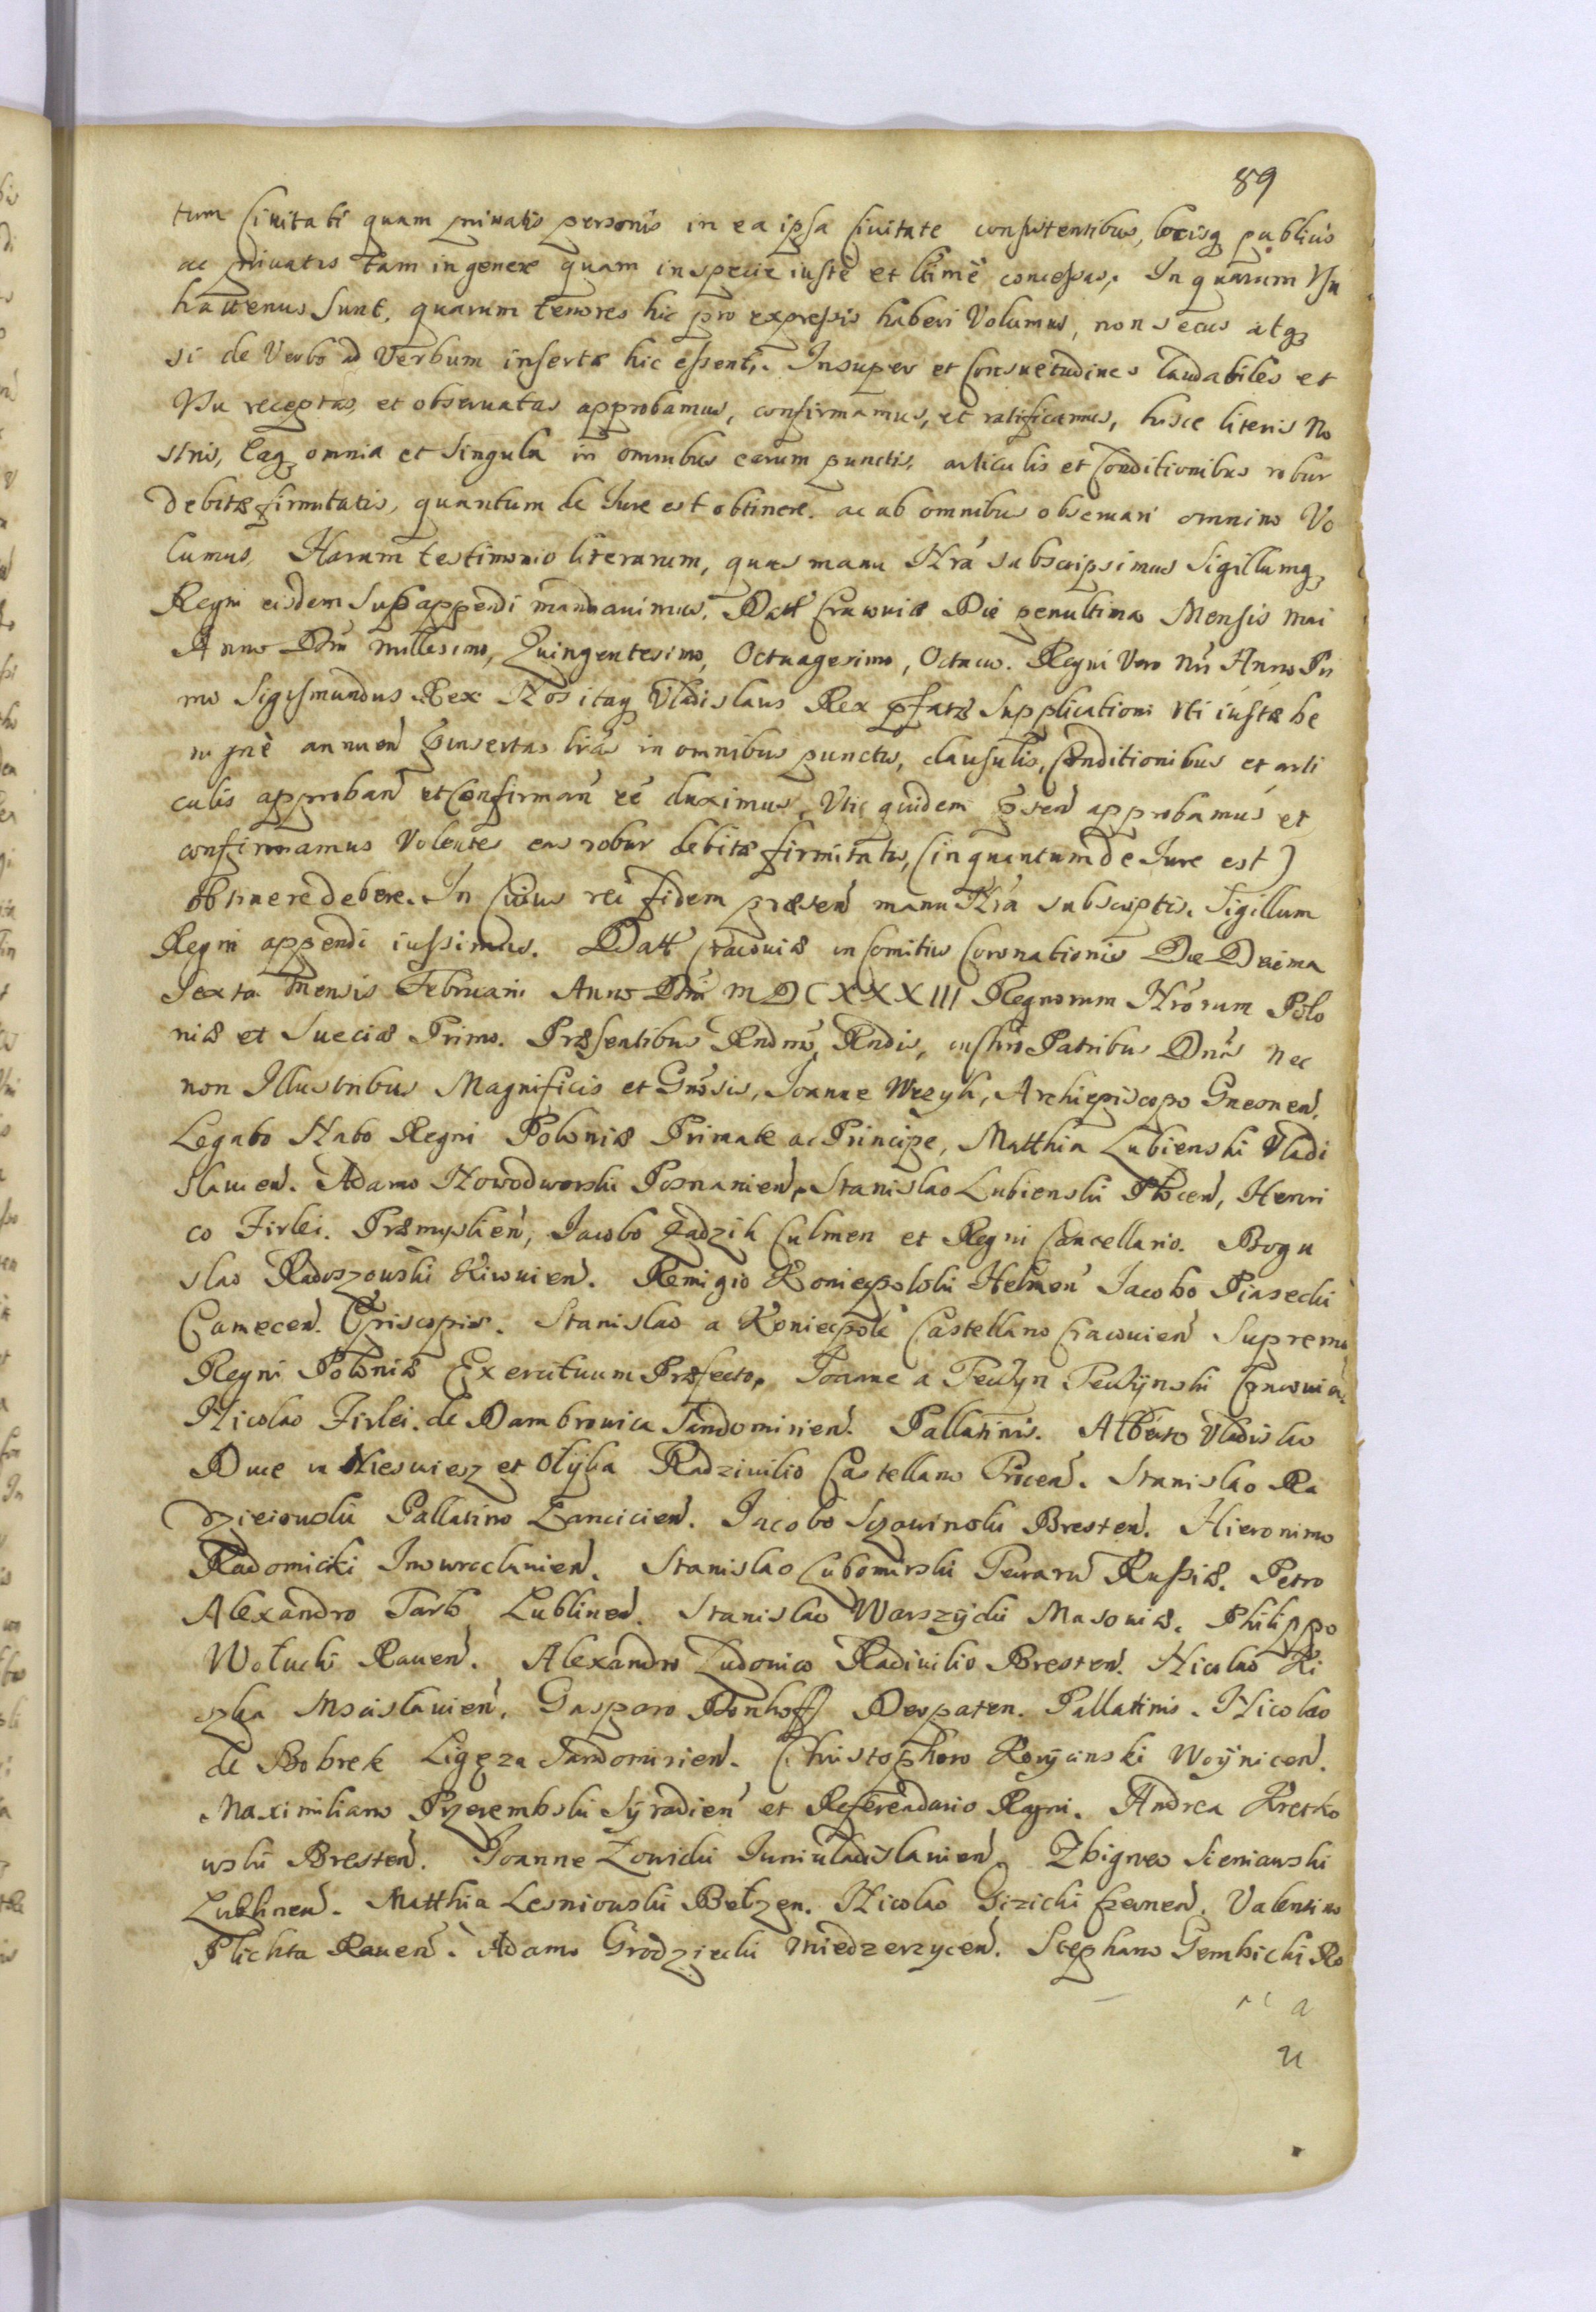 89
tum Ciuitati quam priuatis personis in ea ipsa Ciuitate consistentibus, locisq publicis
ac priuatis tam in genere quam in specie iuste et ltimè concessas, In quarum Vsu
hactenus sunt, quarum tenores hic pro expressis haberi Volumus, non secus atq
si de Verbo ad Verbum insertæ hic essent, Insuper et Consuetudines laudabiles et
Vsu receptas, et obseruatas approbamus, confirmamus, et ratificamus, hisce literis No
stris, Eaq omnia et Singula in omnibus earum punctis, articulis et Conditionibus robur
debitæ firmitatis, quantum de Iure est obtinere. ac ab omnibus obseruari omnino Vo
lumus, Harum testimonio literarum, quas manu Nrá subscripsimus Sigillumq
Regni eisdem Subappendi mandauimus. Datt Cracouiæ Die penultima Mensis Mai
Anno Dñi Millesimo, Quingentesimo, Octuagesimo, Octauo. Regni Vero nri Anno Pri
mo Sigismundus Rex Nos itaq Vladislaus Rex pfatæ Supplicationi Vti iustæ be
nignè annuen pinsertas lrás in omnibus punctis, clausulis, Conditionibus et arti
culis approban et Confirman eé duximus, Vtiq quidem psten approbamus et
confirmamus Volentes eas robur debitæ firmitatis, (in quantum de Iure est)
obtinere debere. In Cuius rei fidem præsen manu Nrá subscriptis. Sigillum
Regni appendi iussimus. Datt Cracouiæ in Comitiis Coronationis Die Decima
Sexta Mensis Februarii Anno Dñi MDCXXXIII Regnorum Nrórum Polo
niæ et Sueciæ Primo. Præsentibus Rndmis, Rndis, in Chrõ Patribus Dnis nec
non Illustribus Magnificis et Gnósis, Ioanne Wezyk, Archiepiscopo Gnesnen,
Legato Nato Regni Poloniæ Primate ac Principe, Matthia Lubienski Vladi
slauien. Adamo Nowodworski Posnanien, Stanislao Lubienski Plocen, Henri
co Firlei. Præmyslien, Iacobo Zadzik Culmen et Regni Cancellario. Bogu
slao Radoszouski Kiouien. Remigio Koniecpolski Helmen Iacobo Piasecki
Camecen. Episcopis. Stanislao a Koniecpole Castellano Cracouien Supremo
Regni Poloniæ Exercituum Præfecto, Ioanne a Teczyn Teczynski Cracouien
Nicolao Firlei. de Dambrouica Sandomirien. Pallatinis. Alberto Vladislao
Duce in Nieswiesz et Olyka Radziuilio Castellano Trocen. Stanislao Ra
dzieiouski Pallatino Lancicien. Iacobo Szczawinski Bresten. Hieronimo
Radomicki Inowroclauien. Stanislao Lubomirski Terrarū Russiæ. Petro
Alexandro Tarlo Lublinen. Stanislao Warszycki Masouiæ. Philippo
Wołucki Rauen. Alexandro Ludouico Radiuilio Bresten. Nicolao Ki
szka Mscislauien, Gasparo Donhoff Derpaten. Pallatinis. Nicolao
de Bobrek Ligęza Sandomirien. Christophoro Koryčinski Woynicen.
Maximiliano Przerembski Syradien et Referendario Regni. Andrea Kretko
wski Bresten. Ioanne Lowicki Iuniuladislauien, Zbigneo Sieniawski
Lublinen. Matthia Lesniouski Bełzen. Nicolao Gizicki Czernen, Valentino
Plichta Rauen. Adamo Grodziecki Miedzerzycen. Stephano Gembicki Ro